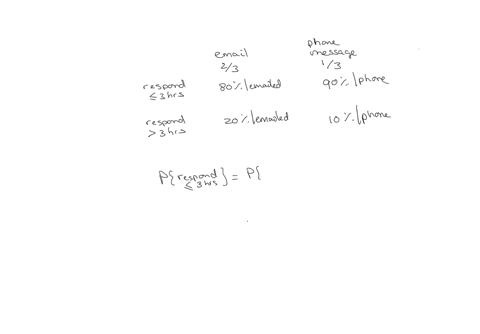 email phone message
2/3 1/3
respond ≤ 3hrs 80%/emailed 90%/phone
respond > 3hrs 20%/emailed 10%/phone
P{respond ≤ 3hrs} = P{